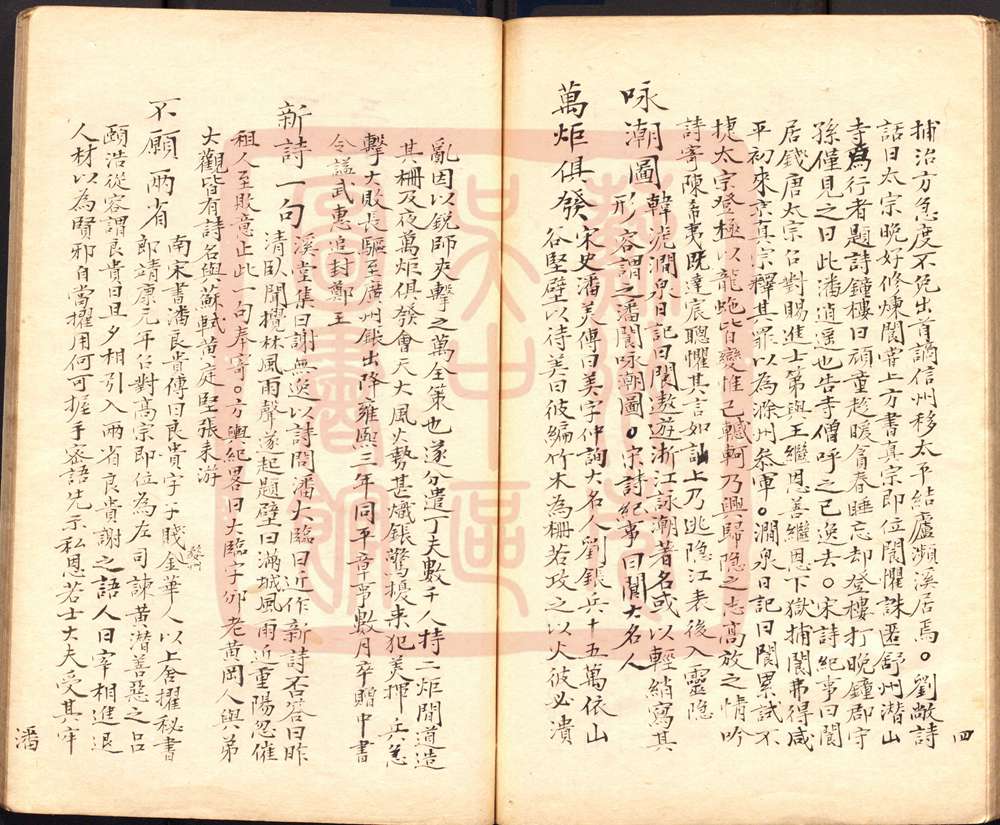 捕治方急度不免出首謫信州移太平結廬瀕溪居焉。劉攽詩
話曰太宗晚好修煉閬嘗上方書真宗即位閬懼誅匿舒州潛山
寺爲行者題詩鐘樓曰頑童趁暖貪春睡忘却登樓打晚鐘郡守
孫僅見之曰此潘逍遥也告寺僧呼之已逸去。宋詩紀事曰閬
居錢唐太宗召對賜進士第與王繼恩善繼恩下獄捕閬弗得咸
平初來京真宗釋其罪以為滁州參軍。澗泉日記曰閬累試不
捷太宗登極以龍蛇皆變惟己轗軻乃興歸隐之志高放之情吟
詩寄陳希夷既達宸聰懼其言如訕上乃逃隐江表後入靈隐
詠潮圖 韓淲澗泉日記曰閬遨遊浙江詠潮著名或以輕綃寫其
形容謂之潘閬詠潮圖。宋詩紀事曰閬大名人
萬炬俱發 宋史潘美傳曰美字仲詢大名人劉鋹兵十五萬依山
谷堅壁以待美曰彼編竹木為柵若攻之以火彼必潰
亂因以銳師夾擊之萬全策也遂分遣丁夫數千人持二炬間道造
其柵及夜萬炬俱發會天大風火勢甚熾鋹驚擾来犯美揮兵急
擊大敗長驅至廣州鋹出降雍熙三年同平章事數月卒贈中書
令謚武惠追封鄭王
新詩一句 溪堂集曰謝無逸以詩問潘大臨曰近作新詩否答曰昨
清臥聞攪林風雨聲遂起題壁曰滿城風雨近重陽忽催
租人至敗意止此一句奉寄。方輿紀畧曰大臨字邠老黃岡人與弟
大觀皆有詩名與蘇軾黃庭堅張耒游
不顧兩省 南宋書潘良貴傳曰良貴字子賤金華人以上舍擢秘書
郎靖康元年召對高宗即位為左司諫黃潛善惡之呂
頤浩從容謂良貴曰旦夕相引入兩省良貴謝之語人曰宰相進退
人材以為賢邪自當擢用何可握手密語先示私恩若士大夫受其牢
四
潘